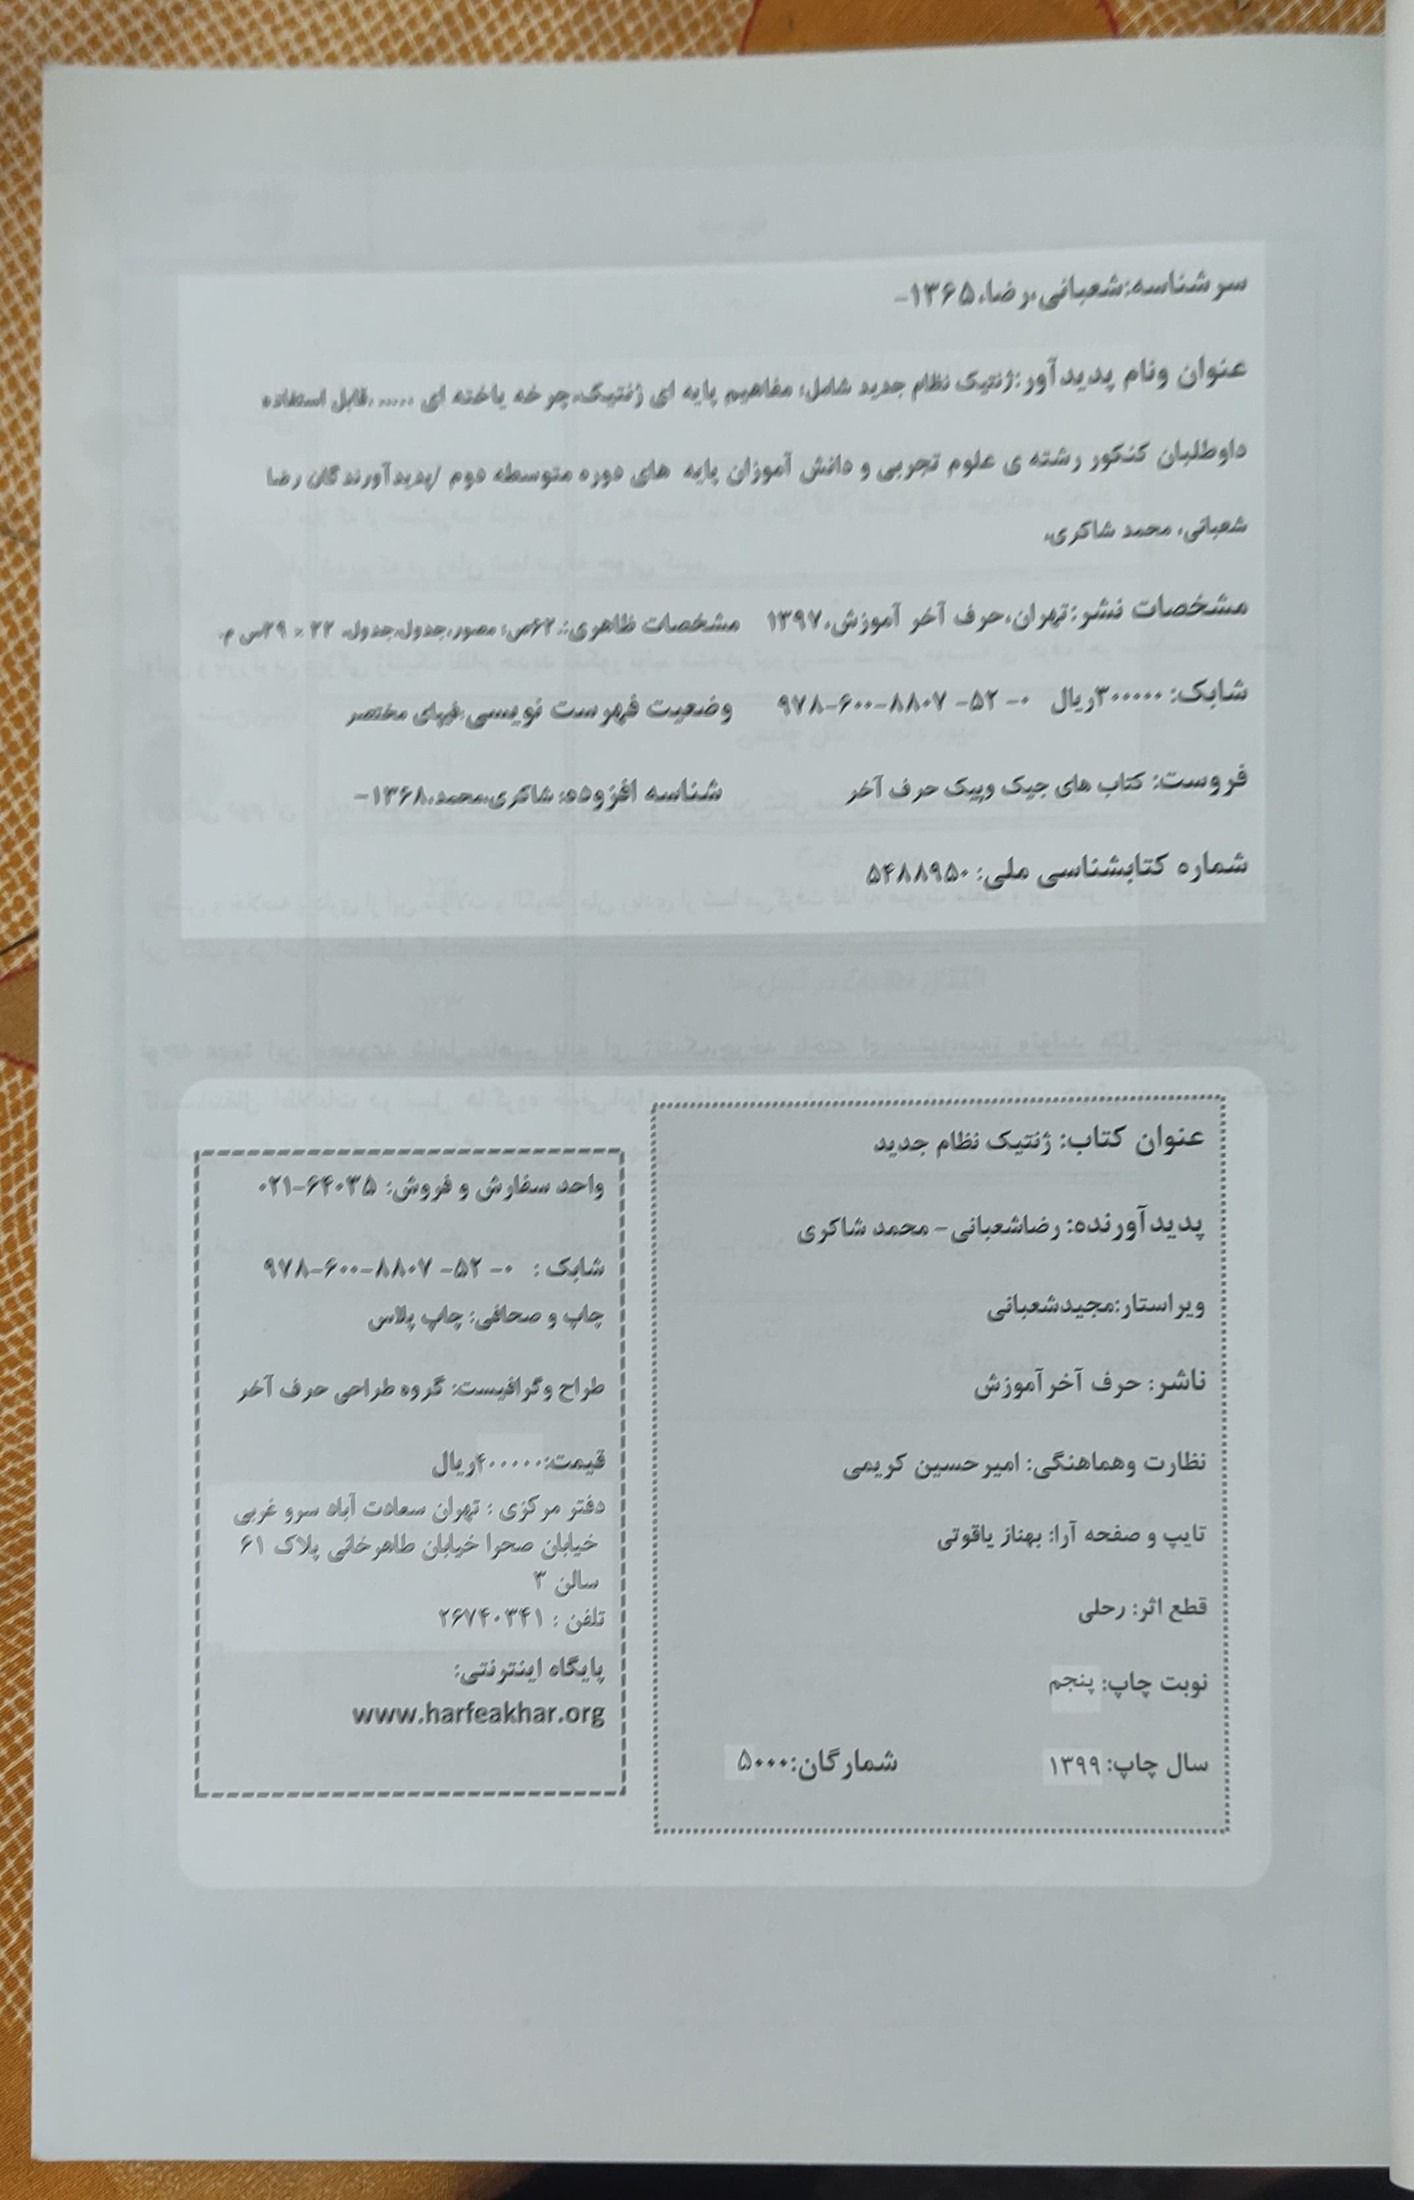 سرشناسه:شعبانی،رضا،۱۳۶۵-
عنوان ونام پدیدآور:ژنتیک نظام جدید شامل؛ مفاهیم پایه ای ژنتیک،چرخه یاخته ای ......قابل استفاده
داوطلبان کنکور رشته ی علوم تجربی و دانش آموزان پایه های دوره متوسطه دوم /پدیدآورندگان رضا
شعبانی، محمد شاکری.
مشخصات نشر:تهران،حرف آخر آموزش،۱۳۹۷ مشخصات ظاهری:.۶۲ص؛ مصور،جدول،جدول. ۲۲ × ۲۹س م.
شابک: ۳۰۰۰۰۰ریال ۰- ۵۲- ۸۸۰۷-۶۰۰-۹۷۸ وضعیت فهرست نویسی:فیپای مختصر
فروست: کتاب های جیک وپیک حرف آخر شناسه افزوده: شاکری،محمد،۱۳۶۸-
شماره کتابشناسی ملی: ۵۴۸۸۹۵۰
عنوان کتاب: ژنتیک نظام جدید
پدیدآورنده: رضاشعبانی- محمد شاکری
ویراستار:مجیدشعبانی
ناشر: حرف آخرآموزش
نظارت وهماهنگی: امیرحسین کریمی
تایپ و صفحه آرا: بهناز یاقوتی
قطع اثر: رحلی
نوبت چاپ: پنجم
سال چاپ: ۱۳۹۹ شمارگان:۵۰۰۰
واحد سفارش و فروش: ۶۴۰۳۵-۰۲۱
شابک : ۰- ۵۲- ۸۸۰۷-۶۰۰-۹۷۸
چاپ و صحافی: چاپ پلاس
طراح وگرافیست: گروه طراحی حرف آخر
قیمت:۴۰۰۰۰۰ریال
دفتر مرکزی : تهران سعادت آباد سرو غربی
خیابان صحرا خیابان طاهرخانی پلاک ۶۱
سالن ۳
تلفن : ۲۶۷۴۰۳۴۱
پایگاه اینترنتی:
www.harfeakhar.org